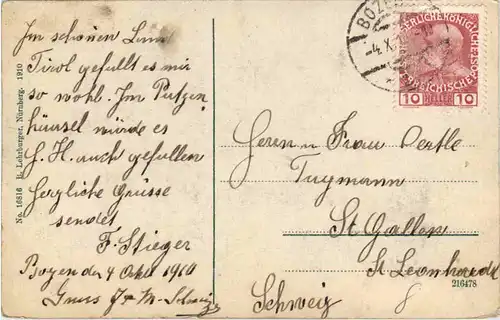 Im schönen Land
Tirol gefällt es mir
so wohl. Im Patzen
häusel würde es
H. auch gefallen
Herzliche Grüsse
sendet
F. Stieger
Bozen den 4 Okt 1910
Gruss
Herrn u Frau Oertle
Tuymann
St Gallen
St Leonhard
Schweiz
No. 16816 B. Lehrburger, Nürnberg. 1910
216478
BOZEN
-4.X.
KAISERLICHE KÖNIGLICHE ÖSTERREICHISCHE POST
10 HELLER 10